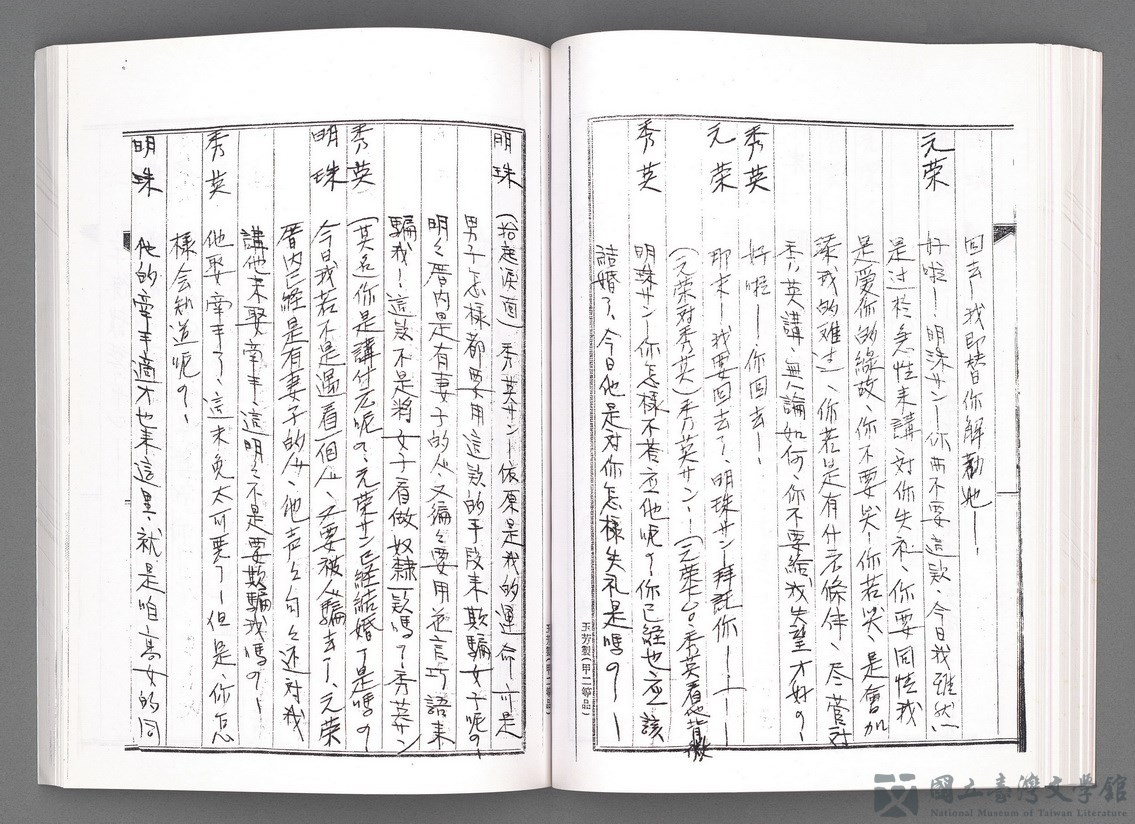 回去！我即替你解勸他！
元荣 好啦！明珠サン！你両不要這款、今日我雖然
是过於急性来講、対你失礼、你要同情我
是愛你的緣故、你不要哭！你若哭、是會加
添我的难过、你若是有什么條件、尽管対
秀英講、無論如何、你不要給我失望才好。
秀英 好啦！！你回去！
元荣 那末！我要回去了、明珠サン！拜託你！！！
(元荣対秀英)秀英サン！！(元荣下台。秀英看他背微
秀英 明珠サン！你怎様不荅应他呢？你已経也应該
結婚了、今日他是対你怎様失礼是嗎？！
玉芳製（甲一等品）
明珠 (抬起淚面)秀英サン！依原是我的運命！亦是
男子怎樣都要用這款的手段来欺騙女子呢？
明々厝内是有妻子的人、又偏々要用花言巧語来
騙我！這款不是將女子看做奴隸一款嗎？秀英サン
秀英 (莫名)你是講什么呢？元荣サン已経結婚了是嗎？
明珠 今日我若不是遇着一個人、又要被人騙去了、元荣
厝内已経是有妻子的人、他声々句々还対我
講他未娶牽手、這明々不是要欺騙我嗎？！
秀英 他娶牽手了、這未免太可悪了！但是、你怎
樣会知道呢？、
明珠 他的牽手適才也来這里、就是咱高女的同
玉芳製（甲一等品）
國立臺灣文學館
National Museum of Taiwan Literature